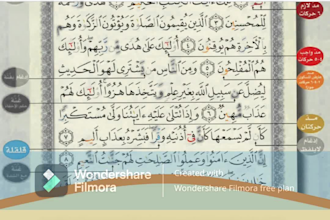 لِّلْمُحْسِنِينَ ٣ ٱلَّذِينَ يُقِيمُونَ ٱلصَّلَوٰةَ وَيُؤْتُونَ ٱلزَّكَوٰةَ وَهُم
بِٱلْءَاخِرَةِ هُمْ يُوقِنُونَ ٤ أُو۟لَٰٓئِكَ عَلَىٰ هُدًى مِّن رَّبِّهِمْ وَأُو۟لَٰٓئِكَ
هُمُ ٱلْمُفْلِحُونَ ٥ وَمِنَ ٱلنَّاسِ مَن يَشْتَرِى لَهْوَ ٱلْحَدِيثِ
لِيُضِلَّ عَن سَبِيلِ ٱللَّهِ بِغَيْرِ عِلْمٍ وَيَتَّخِذَهَا هُزُوًا أُو۟لَٰٓئِكَ لَهُمْ
عَذَابٌ مُّهِينٌ ٦ وَإِذَا تُتْلَىٰ عَلَيْهِ ءَايَٰتُنَا وَلَّىٰ مُسْتَكْبِرًا
كَأَن لَّمْ يَسْمَعْهَا كَأَنَّ فِىٓ أُذُنَيْهِ وَقْرًا فَبَشِّرْهُ بِعَذَابٍ أَلِيمٍ ٧
إِنَّ ٱلَّذِينَ ءَامَنُوا۟ وَعَمِلُوا۟ ٱلصَّٰلِحَٰتِ لَهُمْ جَنَّٰتُ ٱلنَّعِيمِ
مد لازم
٦ حركات
مد واجب
مد
حركتان
غنة
قلقلة
Wondershare
Filmora
Created with
Wondershare Filmora free plan